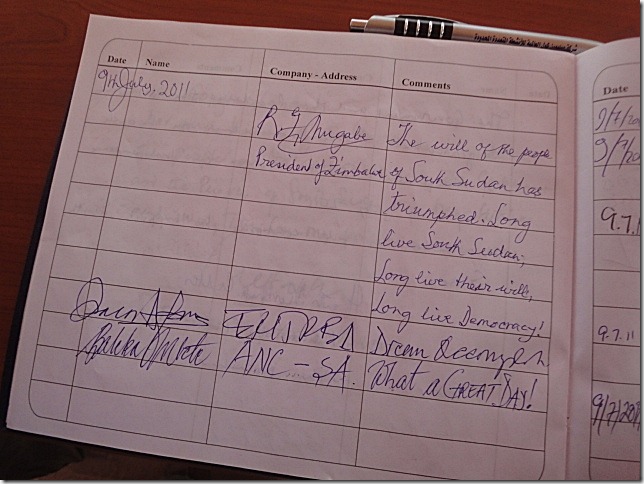 Date Name Company - Address Comments
9th July. 2011
R G Mugabe The will of the people
President of Zimbabwe of South Sudan has
triumphed. Long
live South Sudan;
Long live their will,
Long live Democracy!
Dream
Baleka Mbete ANC - SA. What a GREAT DAY!
Date
9/7/20
9/7/20
9.7.1
9.7.11
9/7/201